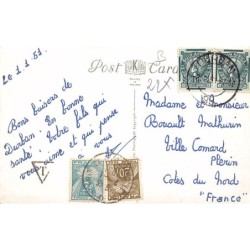 20.1.51.
Post Card
Bons baisers de
Durban. En bonne
santé. Votre fils qui
vous aime et qui pense
à vous
Madame et Monsieur
Bouault Mathurin
Ville Comard
Plérin
Cotes du Nord
"France"
T